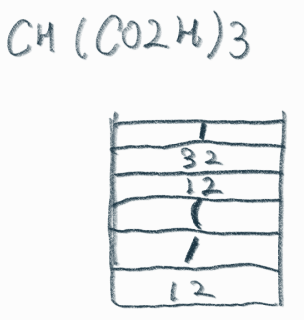 CH(CO2H)3
1
32
12
(
1
12